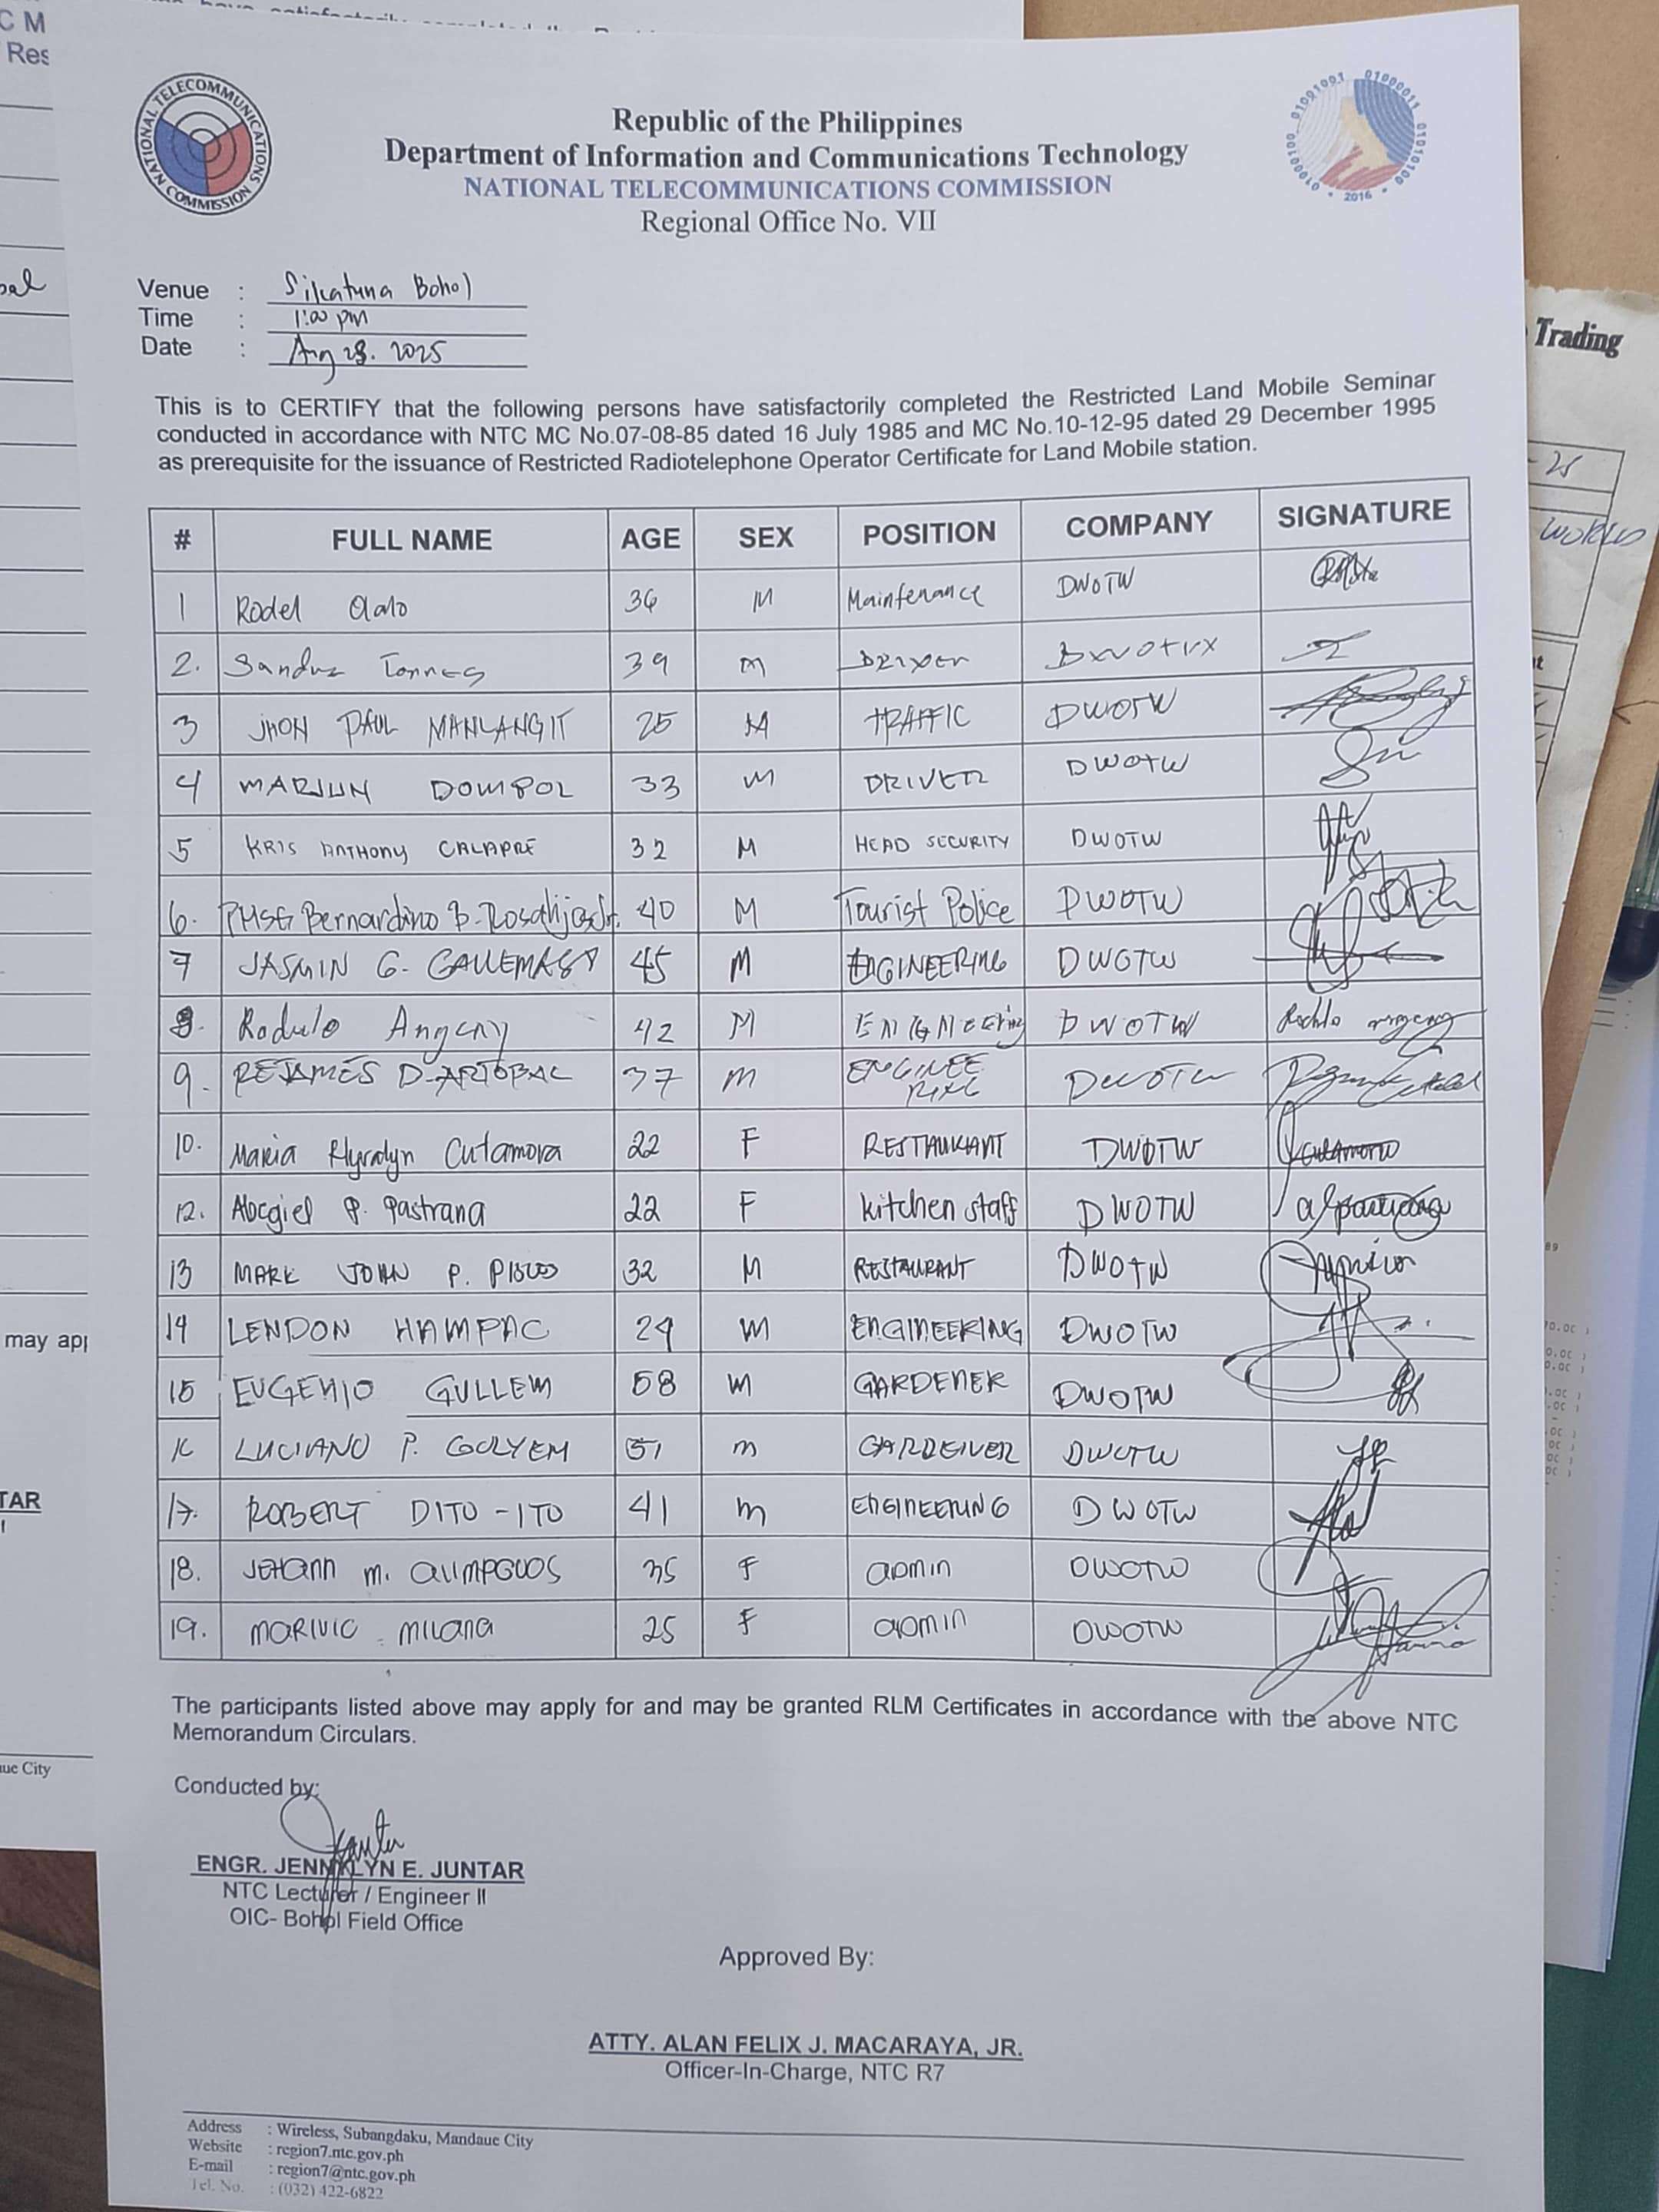 C M
Res
Republic of the Philippines
Department of Information and Communications Technology
NATIONAL TELECOMMUNICATIONS COMMISSION
Regional Office No. VII
NATIONAL TELECOMMUNICATIONS COMMISSION
2016
Venue : Sikatuna Bohol
Time : 1:00 pm
Date : Aug 28. 2025
Trading
This is to CERTIFY that the following persons have satisfactorily completed the Restricted Land Mobile Seminar
conducted in accordance with NTC MC No.07-08-85 dated 16 July 1985 and MC No.10-12-95 dated 29 December 1995
as prerequisite for the issuance of Restricted Radiotelephone Operator Certificate for Land Mobile station.
# FULL NAME AGE SEX POSITION COMPANY SIGNATURE
1 Rodel 36 M Maintenance DWOTW
2. Torres 39 M DWOTW
3 JHON PAUL MANLANGIT 25 M TRAFFIC DWOTW
4 MARJUN DOMPOL 33 M DRIVER DWOTW
5 KRIS ANTHONY CALAPRE 32 M HEAD SECURITY DWOTW
6. PMSG Bernardino B. 40 M Tourist Police DWOTW
7 JASMIN G. 45 M ENGINEERING DWOTW
8. Rodulo 42 M DWOTW
9. REJAMES D. ARTOBAL 37 M ENGINEE
RING DWOTW
10. Maria Cutamora 22 F RESTAURANT DWOTW
12. Abegiel P. Pastrana 22 F kitchen staff DWOTW
13 MARK JOHN P. 32 M RESTAURANT DWOTW
14 LENDON HAMPAC 29 M ENGINEERING DWOTW
15 EUGENIO GULLEM 58 M GARDENER DWOTW
16 LUCIANO P. 51 m GARDENER DWOTW
17. ROBERT DITO-ITO 41 m ENGINEERING DWOTW
18. JEHANN M. 35 F admin DWOTW
19. MARIVIC MILANA 25 F admin DWOTW
The participants listed above may apply for and may be granted RLM Certificates in accordance with the above NTC
Memorandum Circulars.
Conducted by:
ENGR. JENNIKLYN E. JUNTAR
NTC Lecturer / Engineer II
OIC- Bohol Field Office
Approved By:
ATTY. ALAN FELIX J. MACARAYA, JR.
Officer-In-Charge, NTC R7
Address : Wireless, Subangdaku, Mandaue City
Website : region7.ntc.gov.ph
E-mail : region7@ntc.gov.ph
Tel. No. : (032) 422-6822